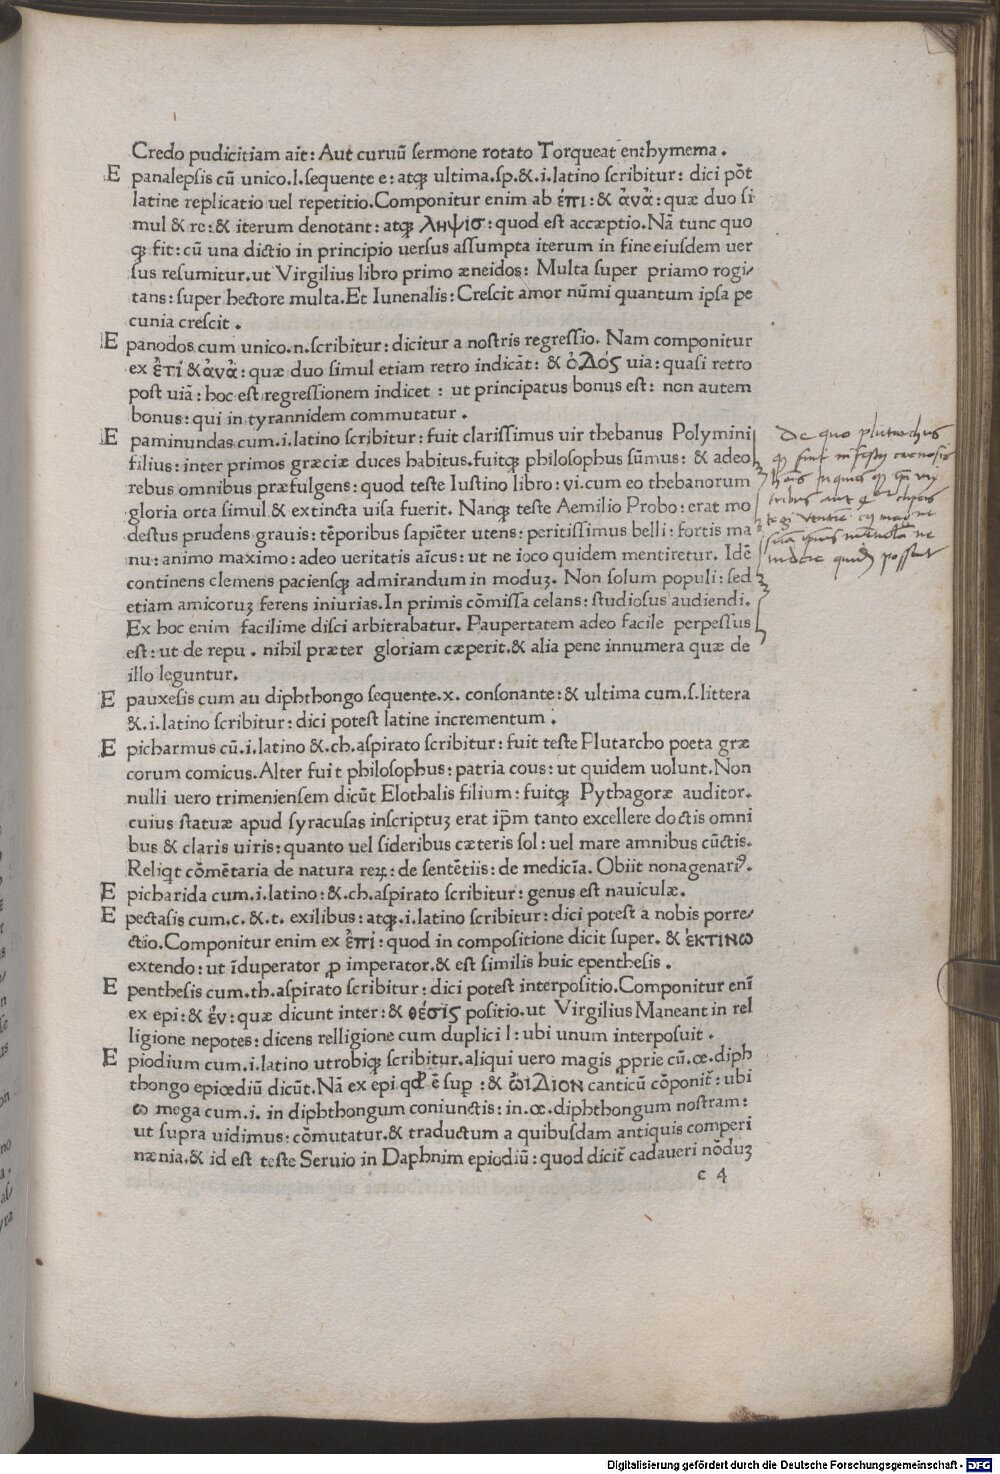 Credo pudicitiam ait: Aut curuū sermone rotato Torqueat enthymema.
E panalepsis cū unico.l.sequente e: atqꝫ ultima.sp.&.i.latino scribitur: dici pōt
latine replicatio uel repetitio.Componitur enim ab ἐπι: & ἀνὰ: quæ duo si
mul & re: & iterum denotant: atqꝫ ληψισ: quod est accæptio.Nā tunc quo
qꝫ fit: cū una dictio in principio uersus assumpta iterum in fine eiusdem uer
sus resumitur.ut Virgilius libro primo æneidos: Multa super priamo rogi⸗
tans: super hectore multa.Et Iunenalis: Crescit amor nūmi quantum ipsa pe
cunia crescit.
E panodos cum unico.n.scribitur: dicitur a nostris regressio. Nam componitur
ex ἐτί & ἀνὰ: quæ duo simul etiam retro indicāt: & ὁδός uia: quasi retro
post uiā: hoc est regressionem indicet: ut principatus bonus est: non autem
bonus: qui in tyrannidem commutatur.
E paminundas cum.i.latino scribitur: fuit clarissimus uir thebanus Polymini
filius: inter primos græciæ duces habitus.fuitqꝫ philosophus sūmus: & adeo
rebus omnibus præfulgens: quod teste Iustino libro: vi.cum eo thebanorum
gloria orta simul & extincta uisa fuerit. Nanqꝫ teste Aemilio Probo: erat mo
destus prudens grauis: tēporibus sapiēter utens: peritissimus belli: fortis ma
nu: animo maximo: adeo ueritatis aīcus: ut ne ioco quidem mentiretur. Idē
continens clemens paciensqꝫ admirandum in moduꝫ. Non solum populi: sed
etiam amicoruꝫ ferens iniurias.In primis cōmissa celans: studiosus audiendi.
Ex hoc enim facilime disci arbitrabatur. Paupertatem adeo facile perpessus
est: ut de repu. nihil præter gloriam cæperit.& alia pene innumera quæ de
illo leguntur.
E pauxesis cum au diphthongo sequente.x. consonante: & ultima cum.s.littera
&.i.latino scribitur: dici potest latine incrementum.
E picharmus cū.i.latino &.ch.aspirato scribitur: fuit teste Plutarcho poeta græ
corum comicus.Alter fuit philosophus: patria cous: ut quidem uolunt.Non
nulli uero trimeniensem dicūt Elothalis filium: fuitqꝫ Pythagoræ auditor.
cuius statuæ apud syracusas inscriptuꝫ erat ip̄m tanto excellere doctis omni
bus & claris uiris: quanto uel sideribus cæteris sol: uel mare amnibus cūctis.
Reliqt cōmētaria de natura reꝝ: de sentētiis: de medicīa. Obiit nonagenariꝰ.
E picharida cum.i.latino: &.ch.aspirato scribitur: genus est nauiculæ.
E pectasis cum.c.&.t. exilibus: atqꝫ.i.latino scribitur: dici potest a nobis porre⸗
ctio.Componitur enim ex ἐπί: quod in compositione dicit super. & ἐκτινω
extendo: ut īduperator ꝓ imperator.& est similis huic epenthesis.
E penthesis cum.th.aspirato scribitur: dici potest interpositio.Componitur enī
ex epi: & ἐν: quæ dicunt inter: & θέσις positio.ut Virgilius Maneant in rel
ligione nepotes: dicens relligione cum duplici l: ubi unum interposuit.
E piodium cum.i.latino utrobiqꝫ scribitur.aliqui uero magis ꝓprie cū.œ.diph
thongo epiœdiū dicūt. Nā ex epi qđ ē suꝑ: & ᾠιδιον canticū cōponit̃: ubi
ω mega cum.i. in diphthongum coniunctis: in.œ.diphthongum nostram:
ut supra uidimus: cōmutatur.& traductum a quibusdam antiquis comperi
nænia.& id est teste Seruio in Daphnim epiodiū: quod dicit̃ cadaueri nōduꝫ
c 4
De quo plutarchus